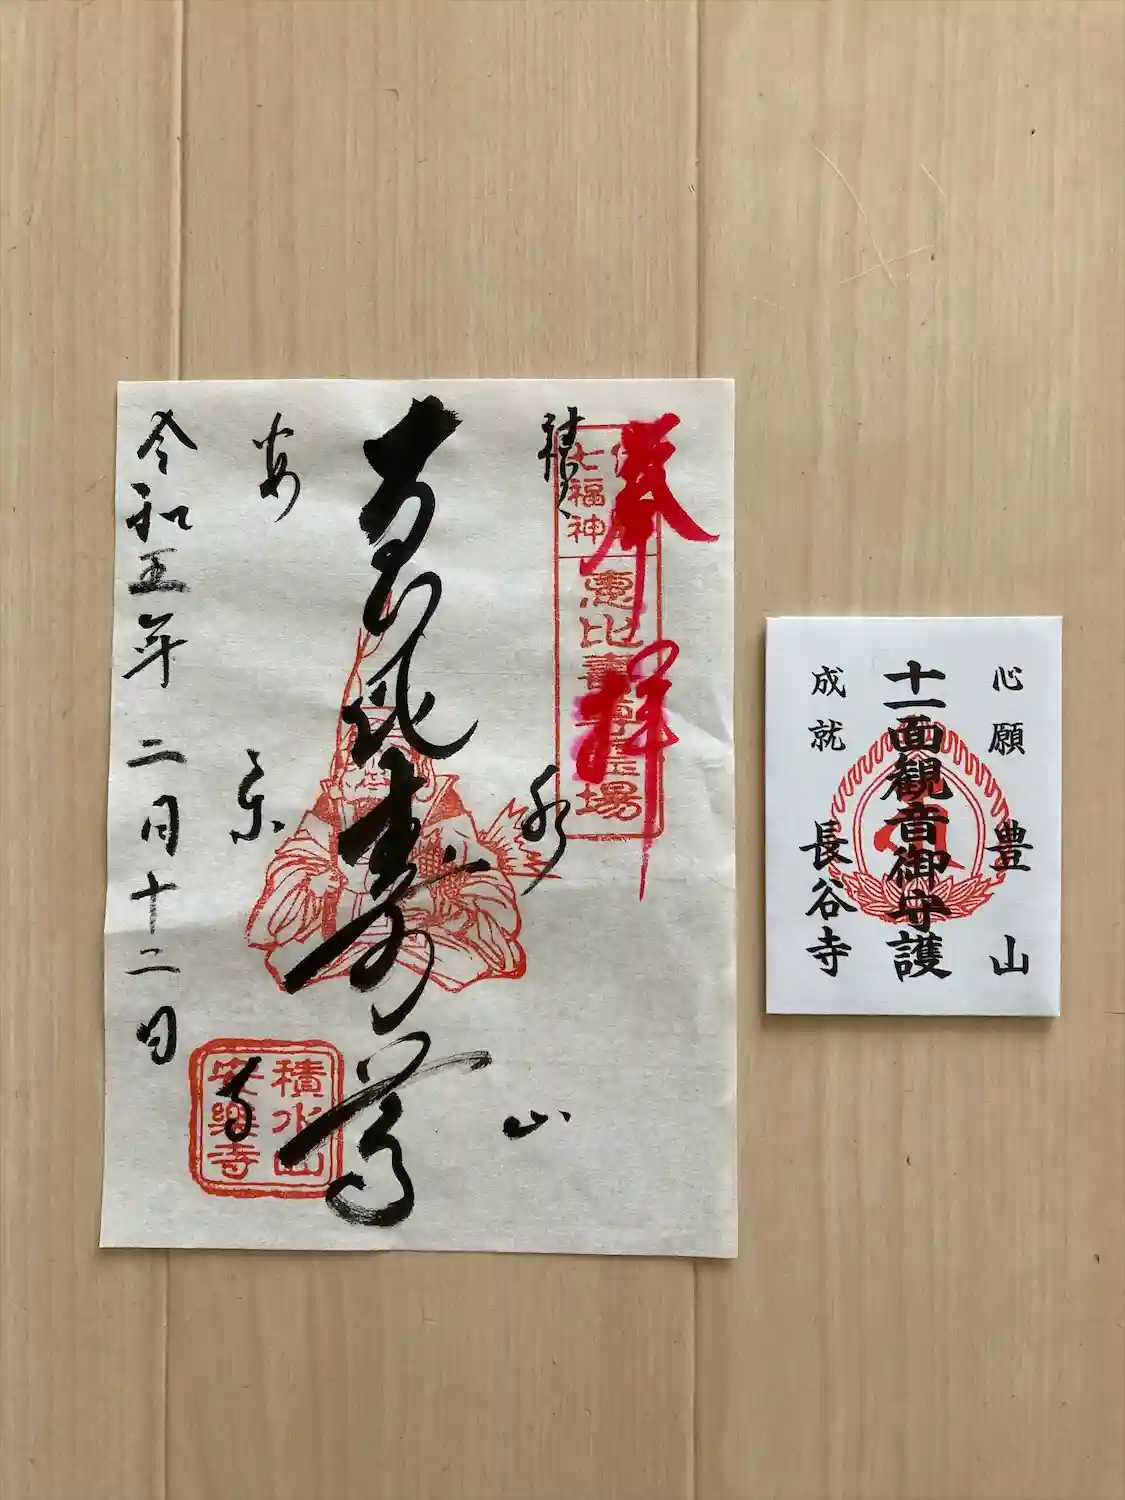 奉拝
七福神
恵比寿尊霊場
積水山
恵比寿尊
安楽寺
令和五年二月十二日
積水山
安樂寺
心願
豊山
十一面観音御守護
成就
長谷寺